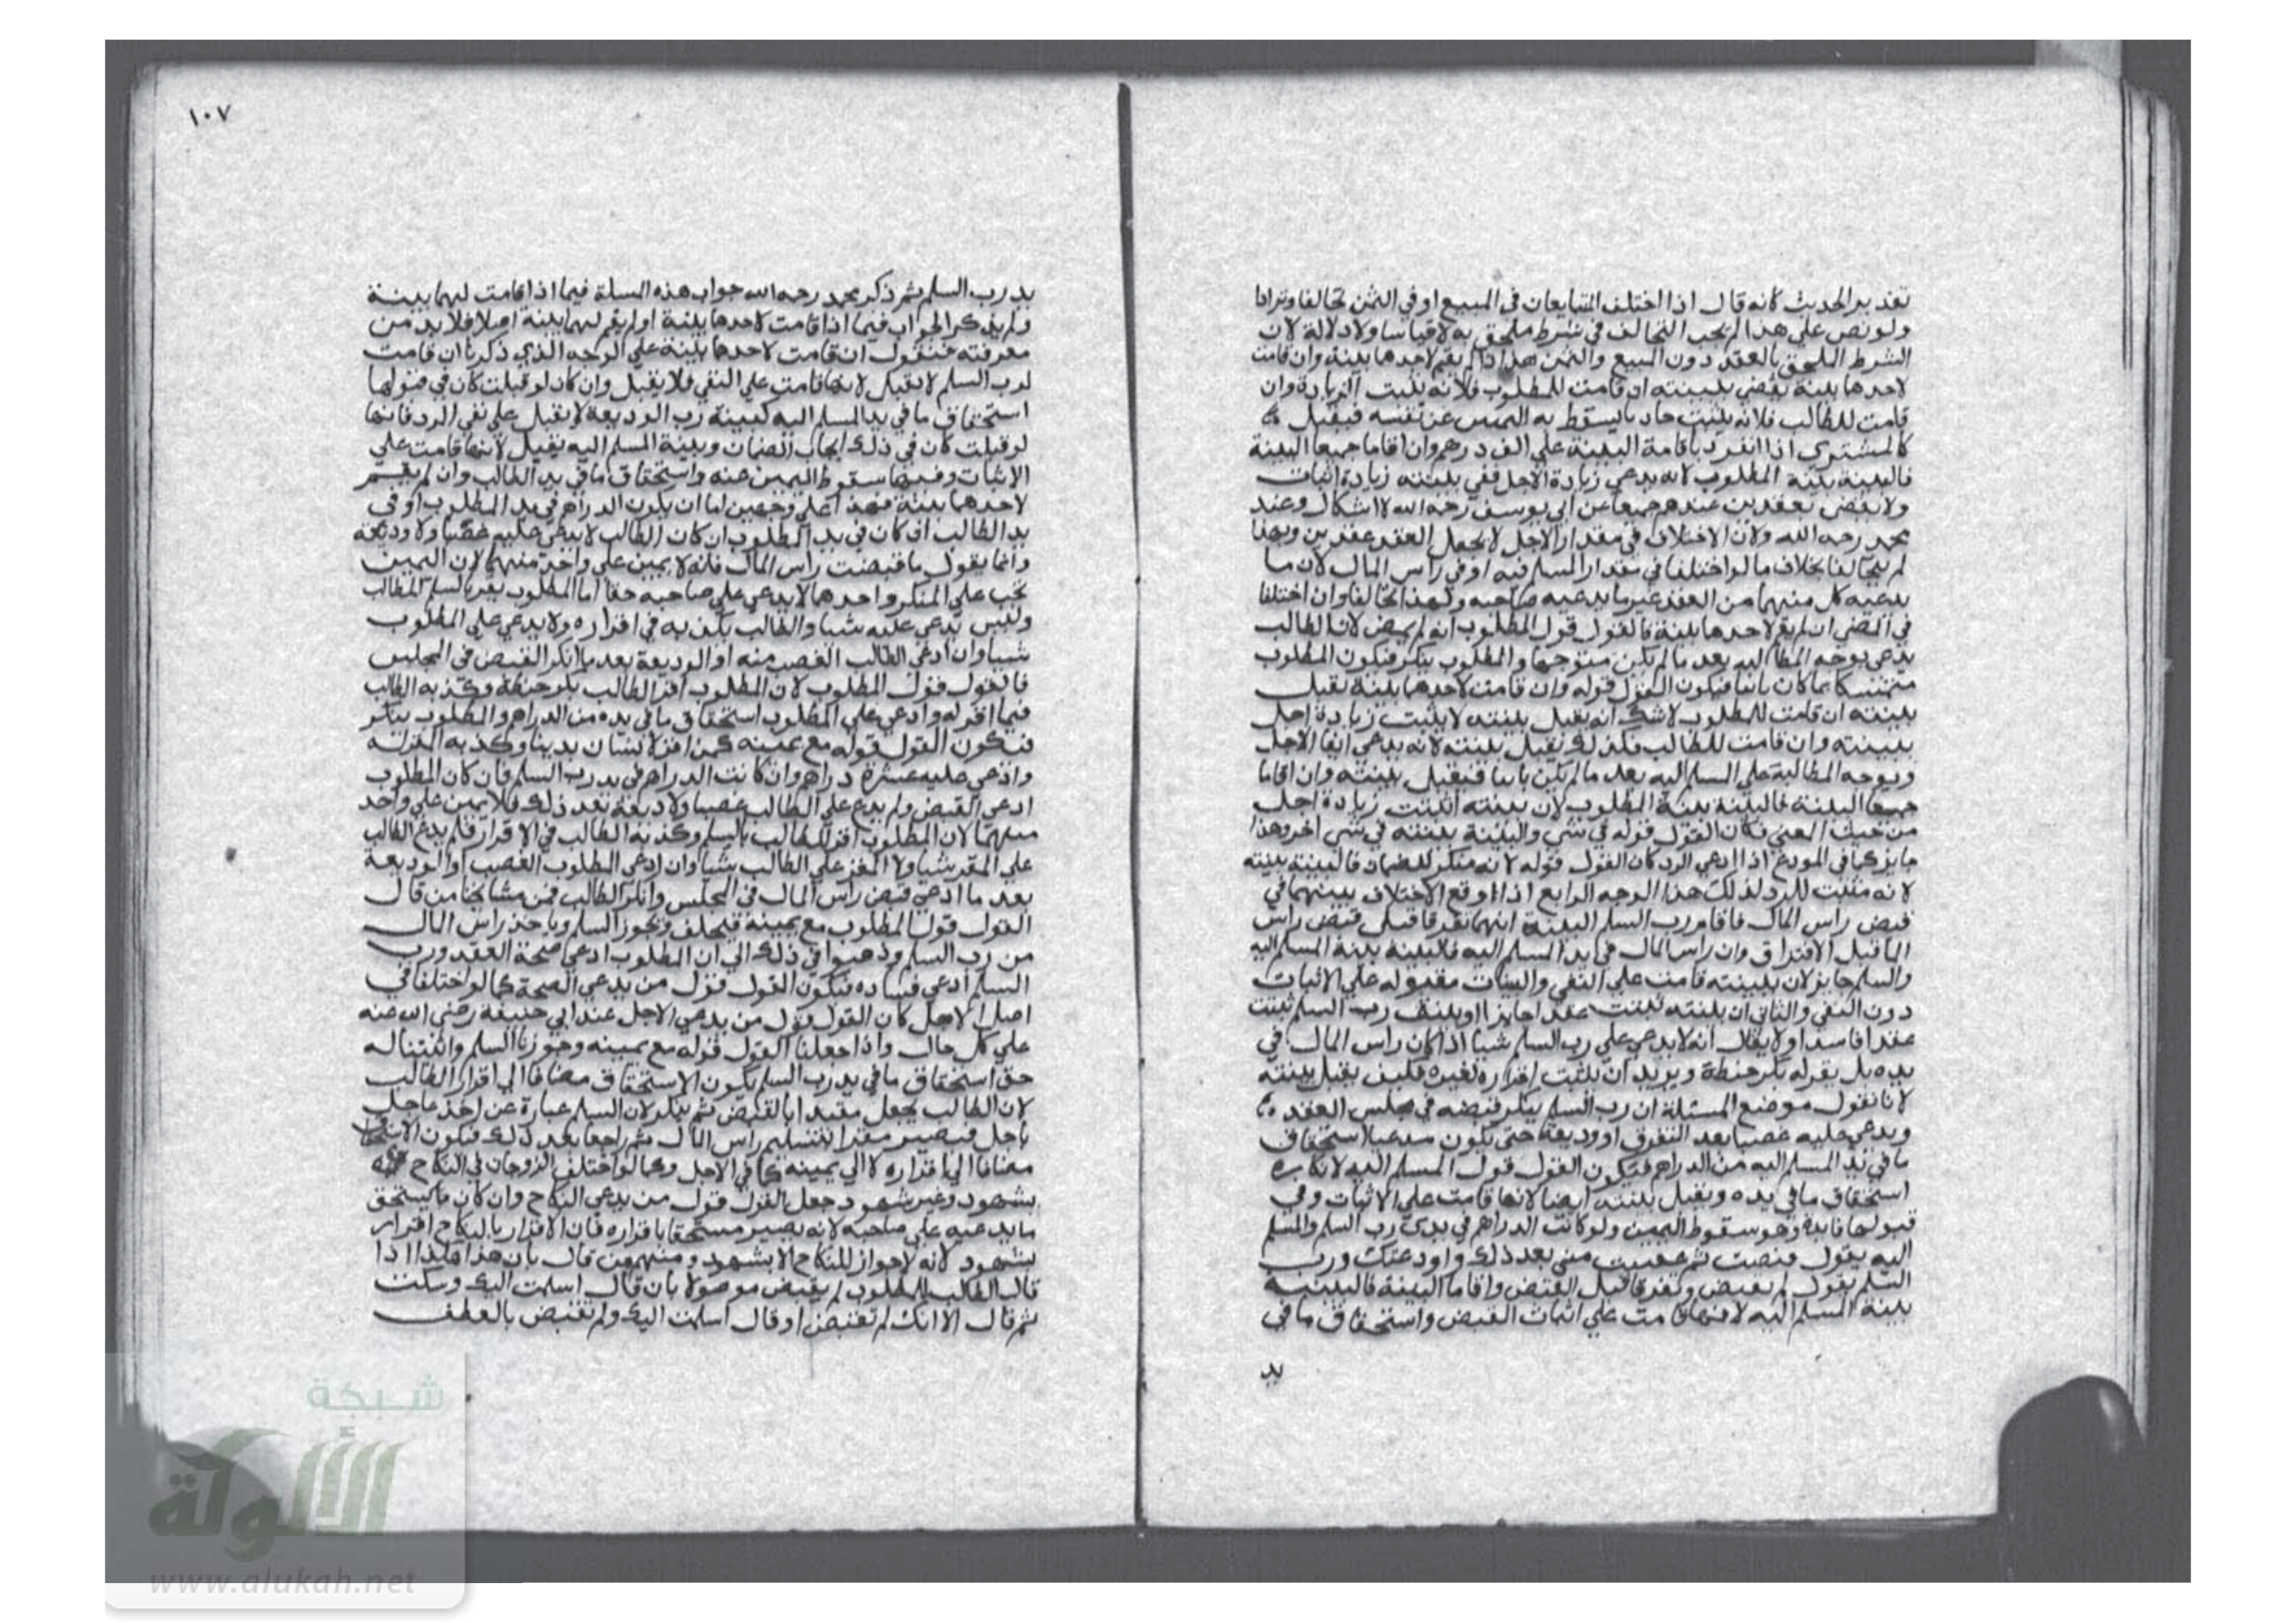 تقدير الحديث كانه قال اذا اختلف المتبايعان في المبيع او في الثمن تحالفا وترادا
ولو نص علي هذا لم يجب التحالف في شرط ملحق به لا قياسا ولا دلالة لان
الشرط الملحق بالعقد دون المبيع والثمن هذا اذا لم يقم لاحدهما بينة وان قامت
لاحدهما بينة يقضي ببينته ان قامت للمطلوب فلانه يثبت الزيادة وان
قامت للطالب فلانه يثبت حاد ما يسقط به اليمين عن نفسه فيقبل
كالمشتري اذا انفرد باقامة البينة علي الف درهم وان اقاما جميعا البينة
فالبينة بينة المطلوب لانه يدعي زيادة الاجل ففي بينته زيادة اثبات
ولا يقضي بعقدين عندهم جميعا عن ابي يوسف رحمه الله لا اشكال وعند
محمد رحمه الله ولان الاختلاف في مقدار الاجل لا يجعل العقد عقدين وبهذا
لم يتحالفا بخلاف ما لو اختلفا في مقدار المسلم فيه او في راس المال لان ما
يدعيه كل منهما من العقد غير ما يدعيه صاحبه ولهذا تحالفا وان اختلفا
في المضي ان لم يقم لاحدهما بينة فالقول قول المطلوب انه لم يمض لان الطالب
يدعي توجه المطالبه بعد ما لم يكن متوجها والمطلوب ينكر فيكون المطلوب
متمسكا بما كان ثابتا فيكون القول قوله وان قامت لاحدهما بينة يقبل
بينته ان قامت للمطلوب لا شك انه يقبل بينته لا يثبت زيادة اجل
ببينته وان قامت للطالب فكذلك يقبل بينته لانه يدعي ايفا الاجل
وتوجه المطالبة علي المسلم اليه بعد ما لم يكن ثابتا فيقبل بينته وان اقاما
جميعا البينة فالبينة بينة المطلوب لان بينته اثبتت زيادة اجل
من حيث المعني فكان القول قوله في شي والبينة بينته في شي اخر وهذا
جايز كما في المودع اذا ادعي الرد كان القول قوله لانه منكر للضمان فالبينة بينته
لانه مثبت للرد لذلك هذا الوجه الرابع اذا وقع الاختلاف بينهما في
قبض راس المال فاقام رب السلم البينة انهما تفرقا قبل قبض راس
الما قبل الافتراق وان راس المال في يد المسلم اليه فالبينة بينة المسلم اليه
والسلم جايز لان بينته قامت علي النفي والبينات مقبوله علي الاثبات
دون النفي والثاني ان بينته تثبت عقدا جايزا وبينة رب السلم تثبت
عقدا فاسدا ولا يقال انه لا يدعي علي رب السلم شيا اذا كان راس المال في
يده بل يقر له بكر حنطة ويريد ان يثبت اقراره لغيره فكيف يقبل بينته
لانا نقول موضع المسئلة ان رب السلم ينكر قبضه في مجلس العقد
ويدعي عليه غصبا بعد التفرق او وديعة حتي يكون مدعيا استحقاق
ما في يد المسلم اليه من الدراهم فيكون القول قول المسلم اليه لانكاره
استحقاق ما في يده ويقبل بينته ايضا لانها قامت علي الاثبات وفي
قبولها فايدة وهو سقوط اليمين ولو كانت الدراهم في يدي رب السلم والمسلم
اليه يقول قبضت ثم غصبت مني بعد ذلك او اودعتك ورب
السلم يقول لم تقبض وتفرقا قبل القبض واقاما البينة فالبينة
بينة المسلم اليه لانها قامت علي اثبات القبض واستحقاق ما في
يد
١٠٧
يد رب السلم ثم ذكر محمد رحمه الله جواب هذه المسلة فيما اذا قامت لهما بينة
ولم يذكر الجواب فيما اذا قامت لاحدهما بينة او لم يقم لهما بينة اصلا فلا بد من
معرفته فنقول ان قامت لاحدهما بينة علي الوجه الذي ذكرنا ان قامت
لرب السلم لا تقبل لانها قامت علي النفي فلا يقبل وان كان لو قبلت كان في قبولها
استحقاق ما في يد المسلم اليه كبينة رب الوديعة لا يقبل علي نفي الرد فانها
لو قبلت كان في ذلك ايجاب الضمان وبينة المسلم اليه يقبل لانها قامت علي
الاثبات وفيها سقوط اليمين عنه واستحقاق ما في يد الطالب وان لم يقم
لاحدهما بينة فهذا علي وجهين اما ان يكون الدراهم في يد المطلوب او في
يد الطالب ان كان في يد المطلوب ان كان الطالب لا يدعي عليه غصبا ولا وديعة
وانما يقول ما قبضت راس المال فانه لا يمين علي واحد منهما لان اليمين
تجب علي المنكر واحدهما لا يدعي علي صاحبه حقا اما المطلوب يقر بالسلم للطالب
وليس يدعي عليه شيا والطالب يكذبه في اقراره ولا يدعي علي المطلوب
شيا وان ادعي الطالب الغصب منه او الوديعة بعد ما انكر القبض في المجلس
فالقول قول المطلوب لان المطلوب اقر للطالب بكر حنطة وكذبه الطالب
فيما اقر له وادعي علي المطلوب استحقاق ما في يده من الدراهم والمطلوب ينكر
فيكون القول قوله مع يمينه كمن اقر لانسان بدينار وكذبه المقر له
وادعي عليه عشرة دراهم وان كانت الدراهم في يد رب السلم فان كان المطلوب
ادعي القبض ولم يدع علي الطالب غصبا ولا وديعة بعد ذلك فلا يمين علي واحد
منهما لان المطلوب اقر للطالب بالسلم وكذبه الطالب في الاقرار فلم يدع الطالب
علي المقر شيا ولا المقر علي الطالب شيا وان ادعي المطلوب الغصب او الوديعة
بعد ما ادعي قبض راس المال في المجلس وانكر الطالب فمن مشايخنا من قال
القول قول المطلوب مع يمينه فيحلف ويجوز السلم وياخذ راس المال
من رب السلم وذهبوا في ذلك الي ان المطلوب ادعي صحة العقد ورب
السلم ادعي فساده فيكون القول قول من يدعي الصحة كما لو اختلفا في
اصل الاجل كان القول قول من يدعي الاجل عند ابي حنيفة رضي الله عنه
علي كل حال واذا جعلنا القول قوله مع يمينه وجوزنا السلم واثبتنا له
حق استحقاق ما في يد رب السلم يكون الاستحقاق مضافا الي اقرار الطالب
لان الطالب يجعل مقرا بالقبض ثم ينكر لان السلم عبارة عن اخذ عاجل
باجل فيصير مقرا بتسليم راس المال ثم راجعا بعد ذلك فيكون الاستحقاق
مضافا الي اقراره لا الي يمينه كما في الاجل وكما لو اختلف الزوجان في النكاح
بشهود وغير شهود جعل القول قول من يدعي النكاح وان كان ما يستحق
ما يدعيه علي صاحبه لانه يصير مستحقا باقراره فان الاقرار بالنكاح اقرار
بشهود لانه لا جواز للنكاح الا بشهود ومنهم من قال بان هذا هكذا اذا
قال الطالب للمطلوب لم يقبض موصولا بان قال اسلمت اليك وسكت
ثم قال الا انك لم تقبض او قال اسلمت اليك ولم تقبض بالعطف
شبكة
الألوكة
www.alukah.net